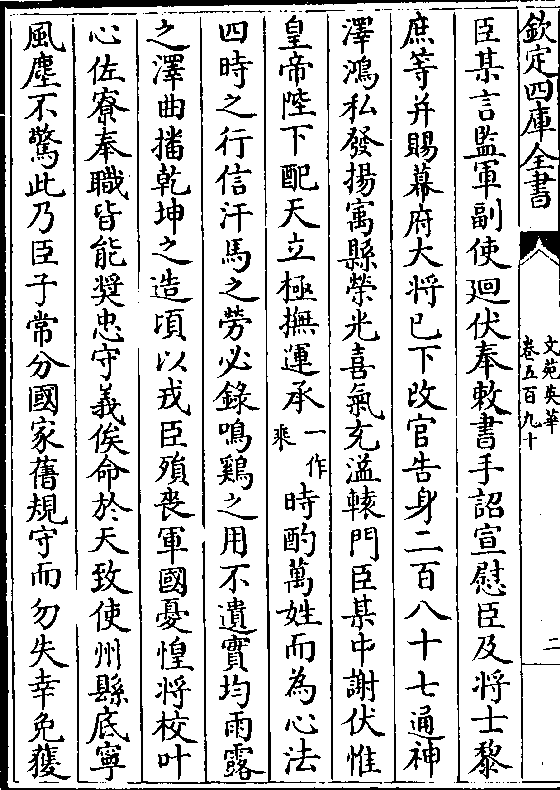 欽定四庫全書
文苑英華
卷五百九十
二
臣某言監軍副使廻伏奉敕書手詔宣慰臣及將士黎
庶等并賜幕府大將已下改官告身二百八十七通神
澤鴻私發揚寓縣榮光喜氣充溢轅門臣某中謝伏惟
皇帝陛下配天立極撫運承一作乘時酌萬姓而為心法
四時之行信汗馬之勞必錄鳴鷄之用不遺實均雨露
之澤曲播乾坤之造頃以戎臣殞喪軍國憂惶將校叶
心佐寮奉職皆能奨忠守義俟命於天致使州縣底寧
風塵不驚此乃臣子常分國家舊規守而勿失幸免獲